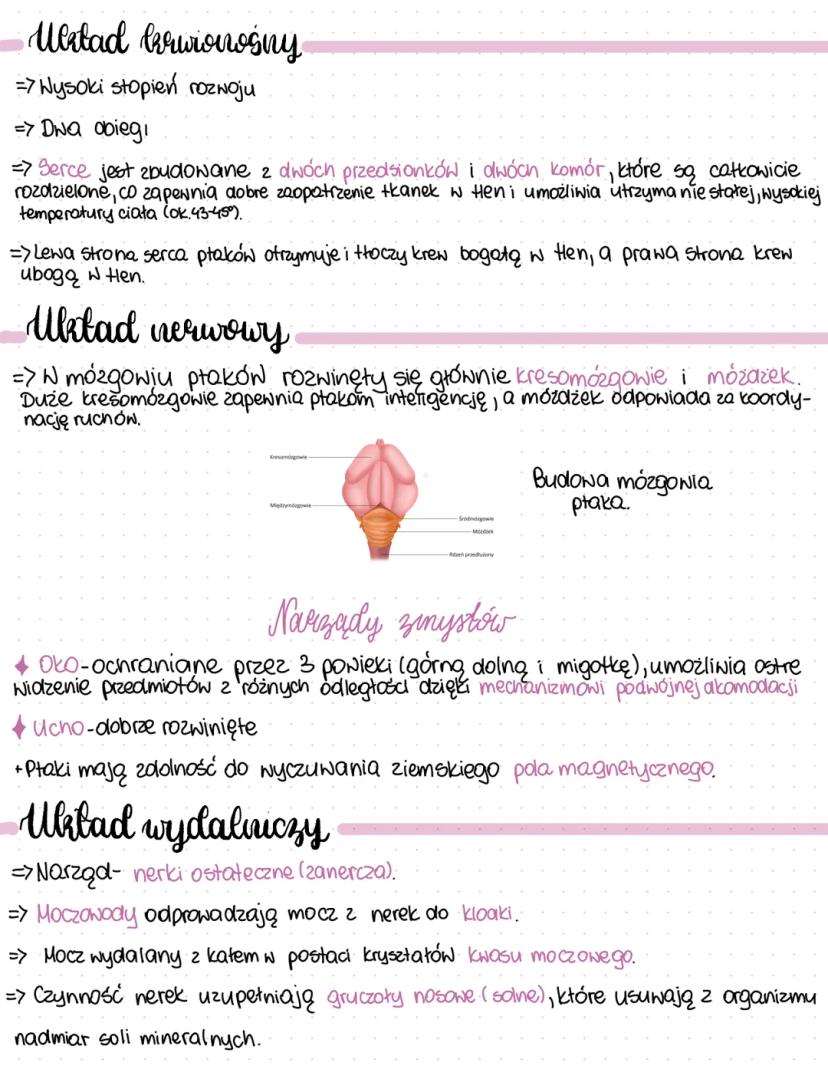 Układ krwionośny
=> Wysoki stopień rozwoju
=> Dwa obiegi
=> Serce jest zbudowane z dwóch przedsionków i dwóch komór, które są całkowicie
rozdzielone, co zapewnia dobre zaopatrzenie tkanek w tlen i umożliwia utrzymanie stałej, wysokiej
temperatury ciała (ok. 43-45°).
=> Lewa strona serca ptaków otrzymuje i tłoczy krew bogatą w tlen, a prawa strona krew
ubogą w tlen.
Układ nerwowy
=> W mózgowiu ptaków rozwinęły się głównie kresomózgowie i móżdżek.
Duże kresomózgowie zapewnia ptakom inteligencję, a móżdżek odpowiada za koordy-
nację ruchów.
Kresomózgowie
Międzymózgowie
Śródmózgowie
Móżdżek
Rdzeń przedłużony
Budowa mózgowia
ptaka.
Narządy zmysłów
Oko - ochraniane przez 3 powieki (górną, dolną i migotkę), umożliwia ostre
widzenie przedmiotów z różnych odległości dzięki mechanizmowi podwójnej akomodacji
Ucho - dobrze rozwinięte
+ Ptaki mają zdolność do wyczuwania ziemskiego pola magnetycznego.
Układ wydalniczy
=> Narząd- nerki ostateczne (zanercza).
=> Moczowody odprowadzają mocz z nerek do kloaki.
=> Mocz wydalany z kałem w postaci kryształów kwasu moczowego.
=> Czynność nerek uzupełniają gruczoły nosowe (solne), które usuwają z organizmu
nadmiar soli mineralnych.